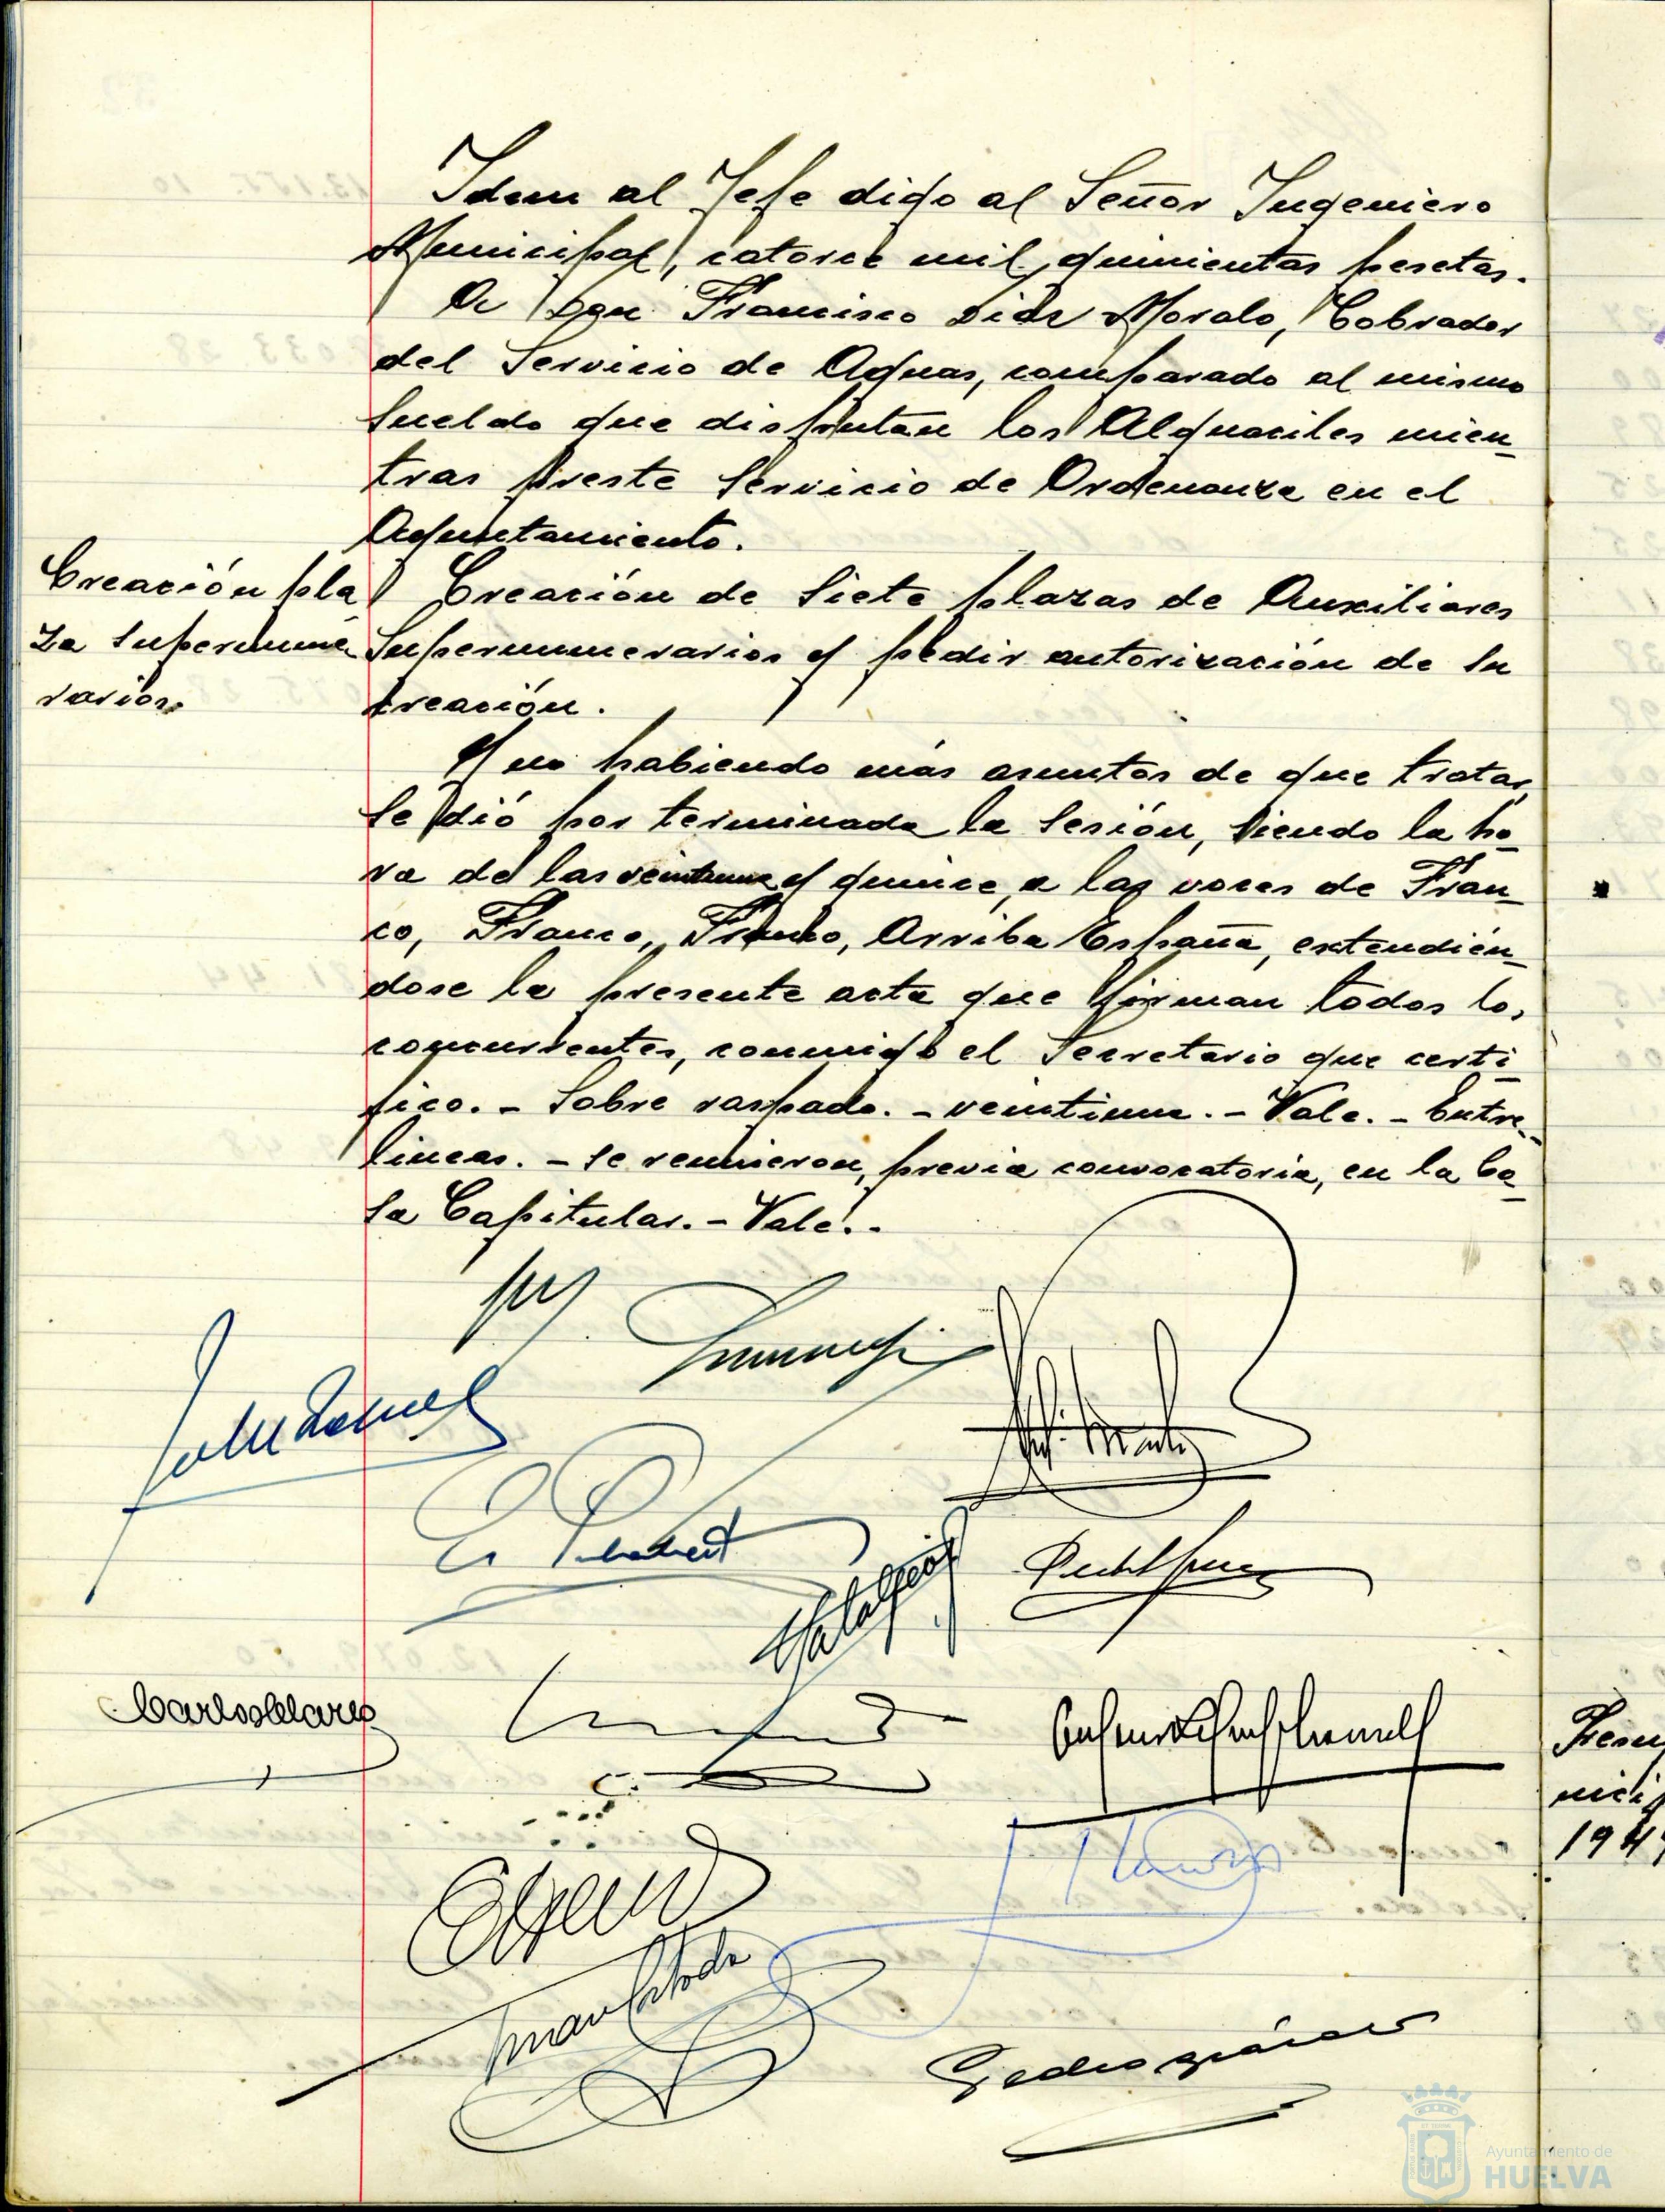 Idem al Jefe digo al Señor Ingeniero
Municipal, catorce mil quinientas pesetas.
A Don Francisco Díaz Moralo, Cobrador
del Servicio de Aguas, comparado al mismo
sueldo que disfrutan los Alguaciles mien-
tras preste servicio de Ordenanza en el
Ayuntamiento.
Creación pla
za supernume
rarios.
Creación de siete plazas de Auxiliares
Supernumerarios y pedir autorización de su
creación.
Y no habiendo más asuntos de que tratar,
se dió por terminada la sesión, siendo la ho-
ra de las veintiuna y quince, a las voces de Fran-
co, Franco, Franco, Arriba España, extendién-
dose la presente acta que firman todos los
concurrentes, conmigo el Secretario que certi-
fico. - Sobre raspado. - veintiuna. - Vale. - Entre-
lineas. - se reunieron, previa convocatoria, en la Ca-
sa Capitular. - Vale. -
Carlos
Pedro
194
Ayuntamiento de
HUELVA